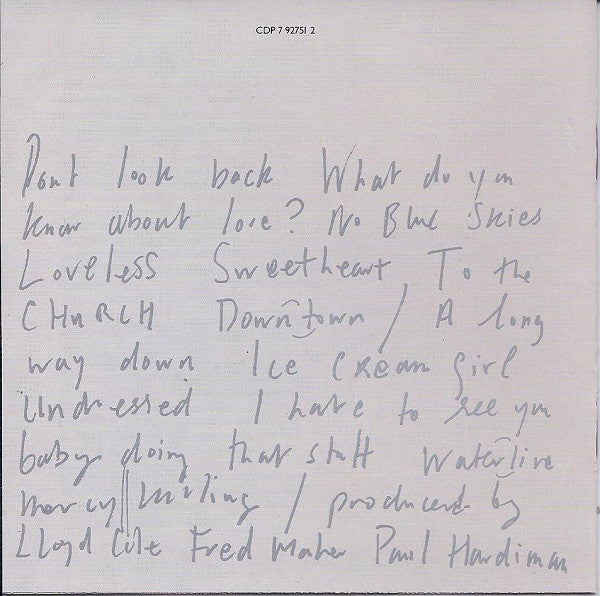 CDP 7 92751 2
Dont look back What do you
know about love? No Blue Skies
Loveless Sweetheart, To the
CHURCH Downtown / A long
way down Ice Cream Girl
Undressed I hate to see you
baby doing that stuff Waterline
mercy killing / produced by
LLoyd Cole Fred Maher Paul Hardiman